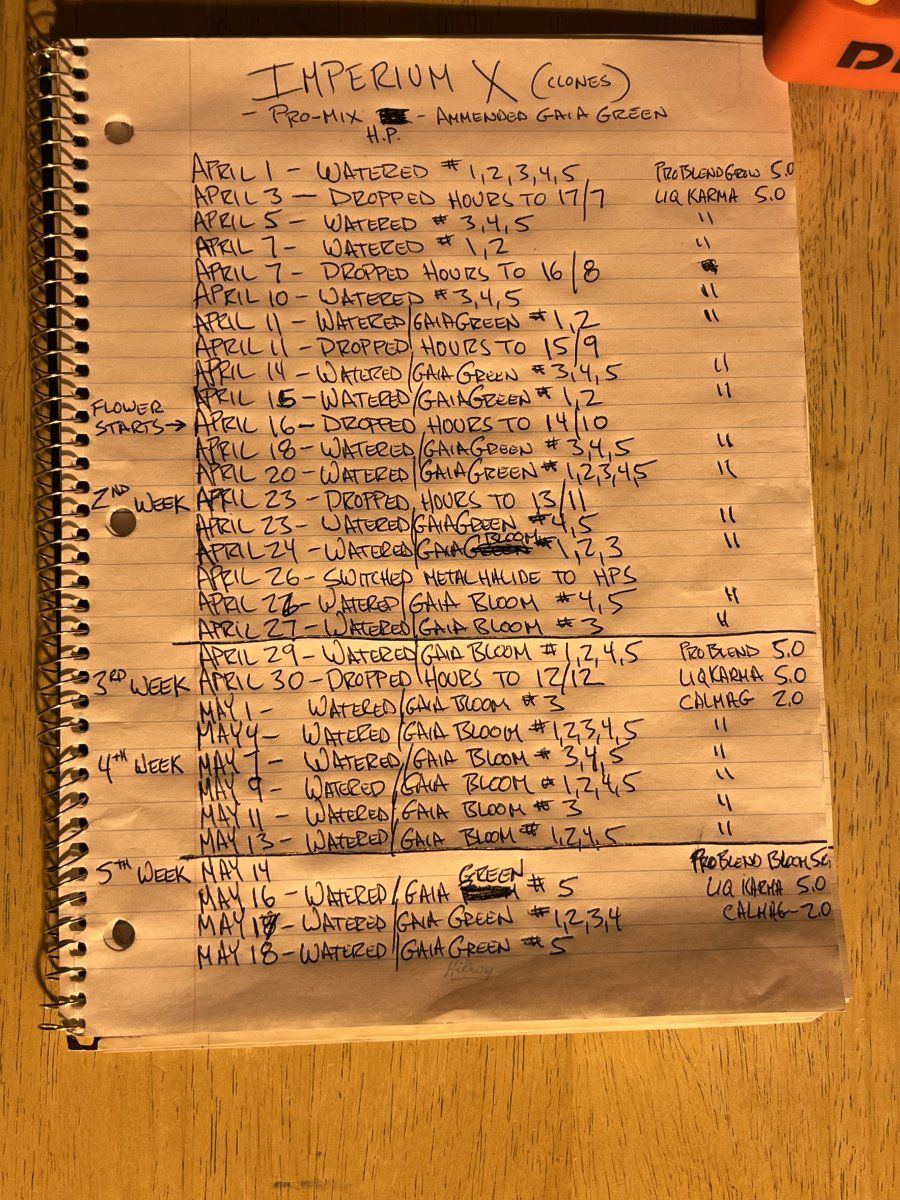 IMPERIUM X (CLONES)
- PRO-MIX H.P. - AMMENDED GAIA GREEN
APRIL 1 - WATERED # 1,2,3,4,5 PROBLENDGROW 5.0
APRIL 3 - DROPPED HOURS TO 17/7 LIQ KARMA 5.0
APRIL 5 - WATERED # 3,4,5 "
APRIL 7 - WATERED # 1,2 "
APRIL 7 - DROPPED HOURS TO 16/8
APRIL 10 - WATERED # 3,4,5 "
APRIL 11 - WATERED/GAIAGREEN # 1,2 "
APRIL 11 - DROPPED HOURS TO 15/9
APRIL 14 - WATERED/GAIA GREEN # 3,4,5 "
APRIL 15 - WATERED/GAIAGREEN # 1,2 "
FLOWER STARTS → APRIL 16 - DROPPED HOURS TO 14/10
APRIL 18 - WATERED/GAIA GREEN # 3,4,5 "
APRIL 20 - WATERED/GAIAGREEN # 1,2,3,4,5 "
2ND WEEK APRIL 23 - DROPPED HOURS TO 13/11
APRIL 23 - WATERED/GAIAGREEN # 4,5 "
APRIL 24 - WATERED/GAIA BLOOM # 1,2,3 "
APRIL 26 - SWITCHED METALHALIDE TO HPS
APRIL 26 - WATERED/GAIA BLOOM # 4,5 "
APRIL 27 - WATERED/GAIA BLOOM # 3 "
APRIL 29 - WATERED/GAIA BLOOM # 1,2,4,5 PROBLEND 5.0
3RD WEEK APRIL 30 - DROPPED HOURS TO 12/12 LIQKARMA 5.0
MAY 1 - WATERED/GAIA BLOOM # 3 CALMAG 2.0
MAY 4 - WATERED/GAIA BLOOM # 1,2,3,4,5 "
4TH WEEK MAY 7 - WATERED/GAIA BLOOM # 3,4,5 "
MAY 9 - WATERED/GAIA BLOOM # 1,2,4,5 "
MAY 11 - WATERED/GAIA BLOOM # 3 "
MAY 13 - WATERED/GAIA BLOOM # 1,2,4,5 "
5TH WEEK MAY 14 PROBLEND BLOOM
MAY 16 - WATERED/GAIA GREEN # 5 LIQ KARMA 5.0
MAY 17 - WATERED/GAIA GREEN # 1,2,3,4 CALMAG - 2.0
MAY 18 - WATERED/GAIA GREEN # 5
Hilroy